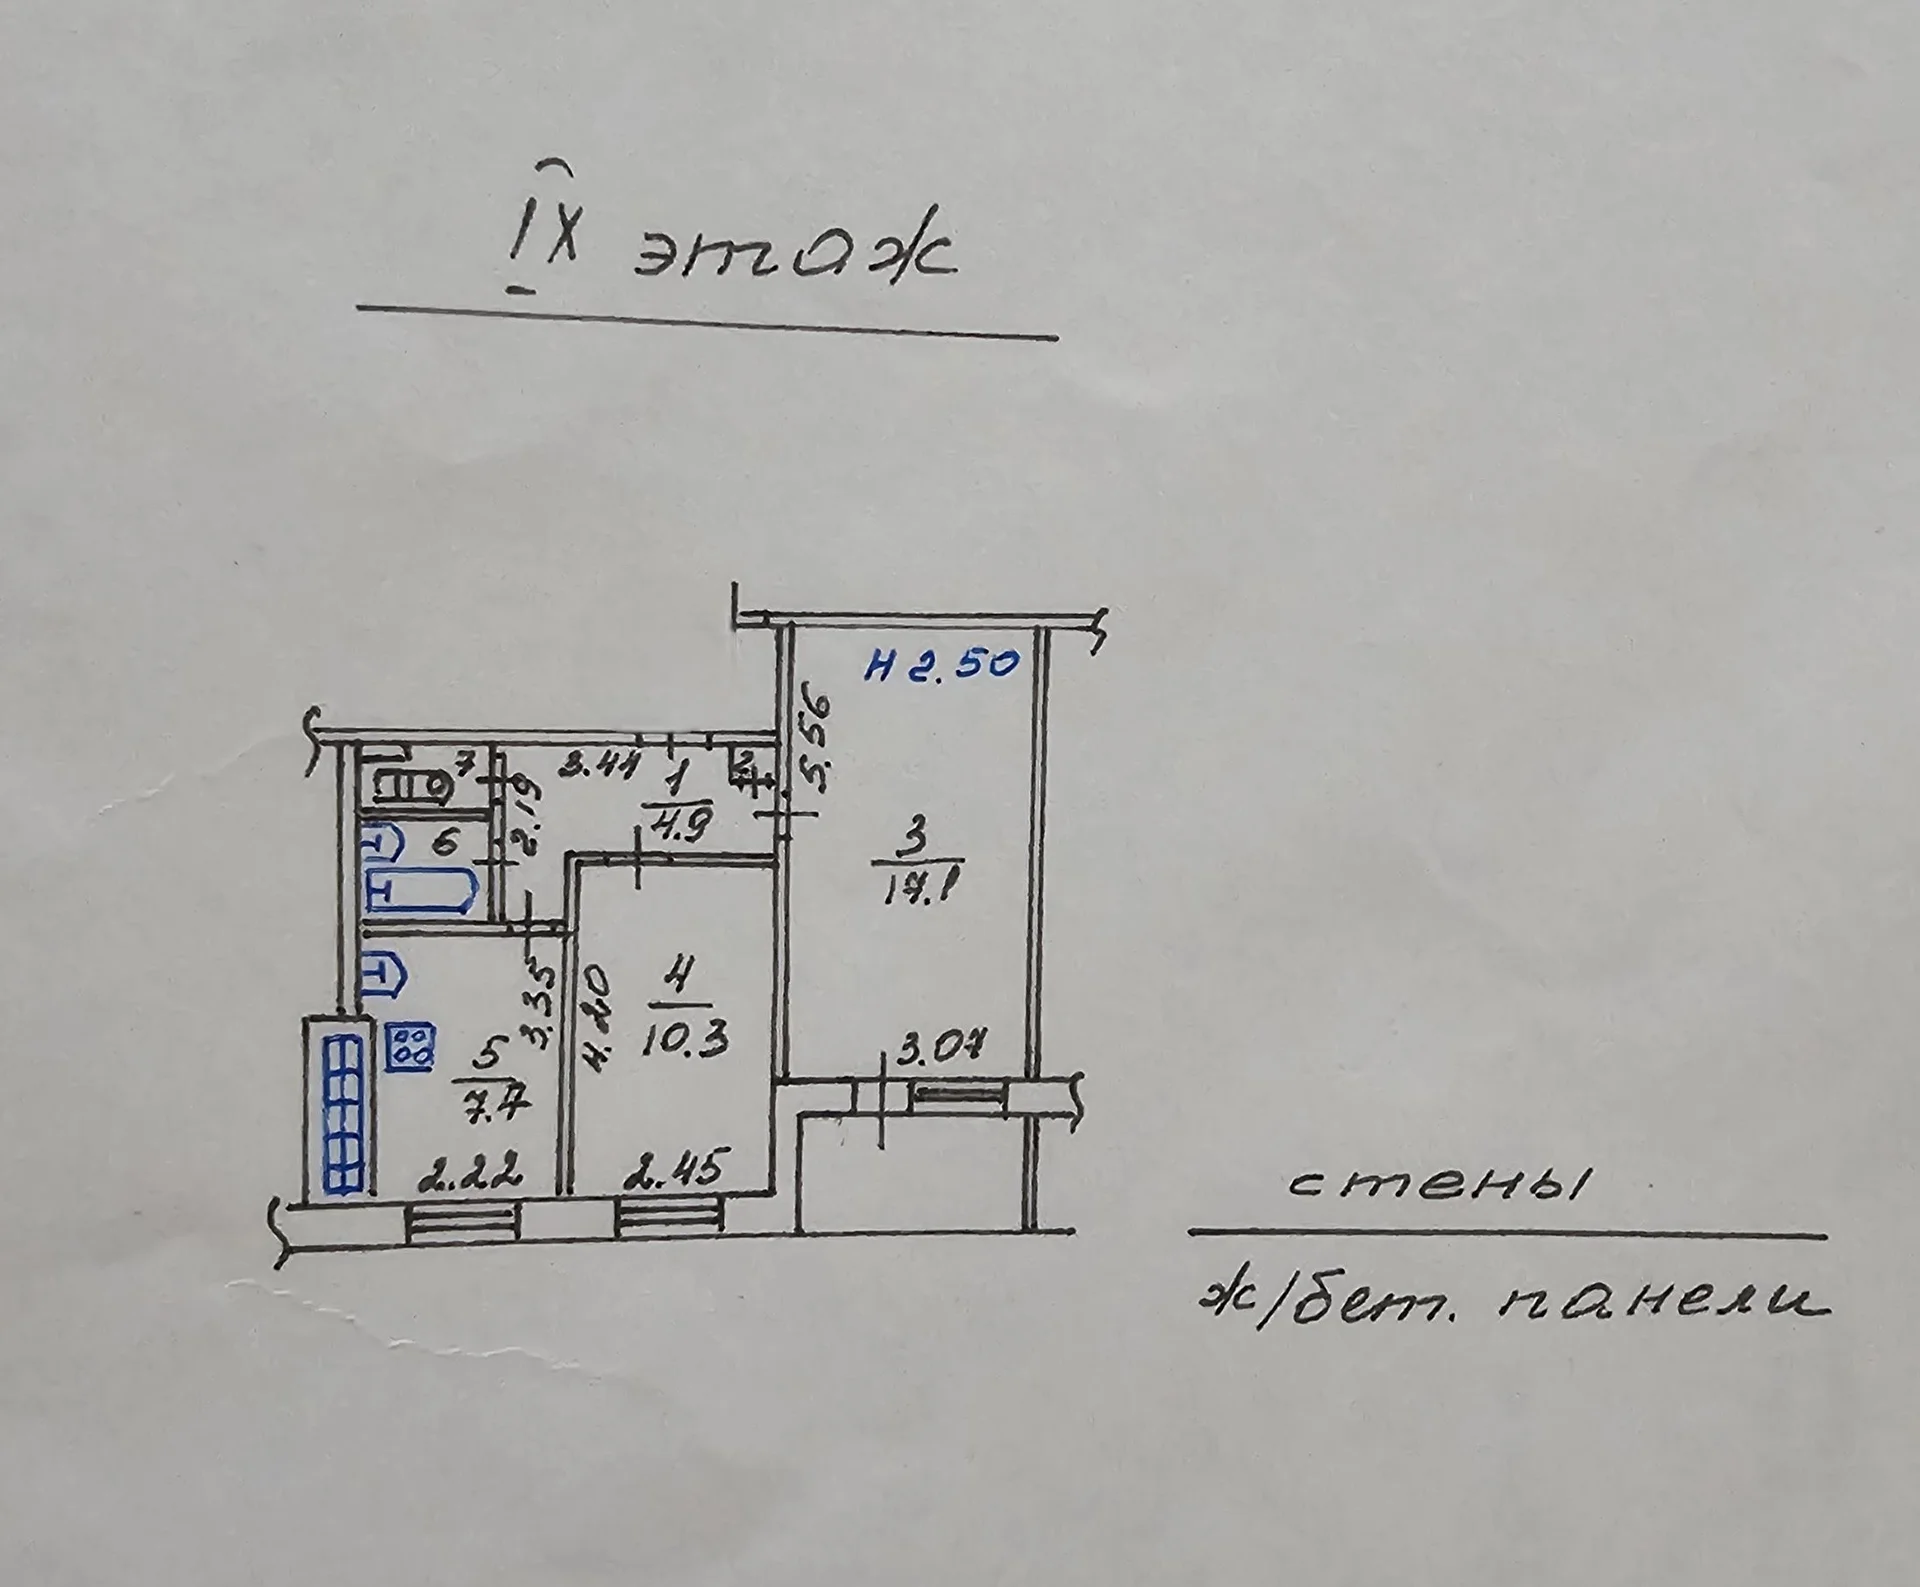 IX этаж
H 2.50
5.56
7
3.41
1
4.9
2
2.19
6
3
17.1
3.35
4.20
4
10.3
5
7.4
3.07
2.22
2.45
стены
ж/бет. панели